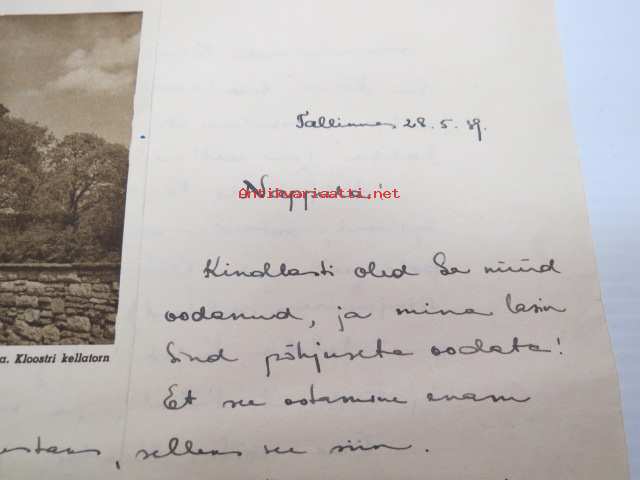 Tallinnas 28.5.39.
Antikvariaatti.net
Kindlasti oled Sa nüüd
oodanud, ja mina lasin
Sind põhjuseta oodata!
a. Kloostri kellatorn
Et see ootamine enam
, selleks see siin.